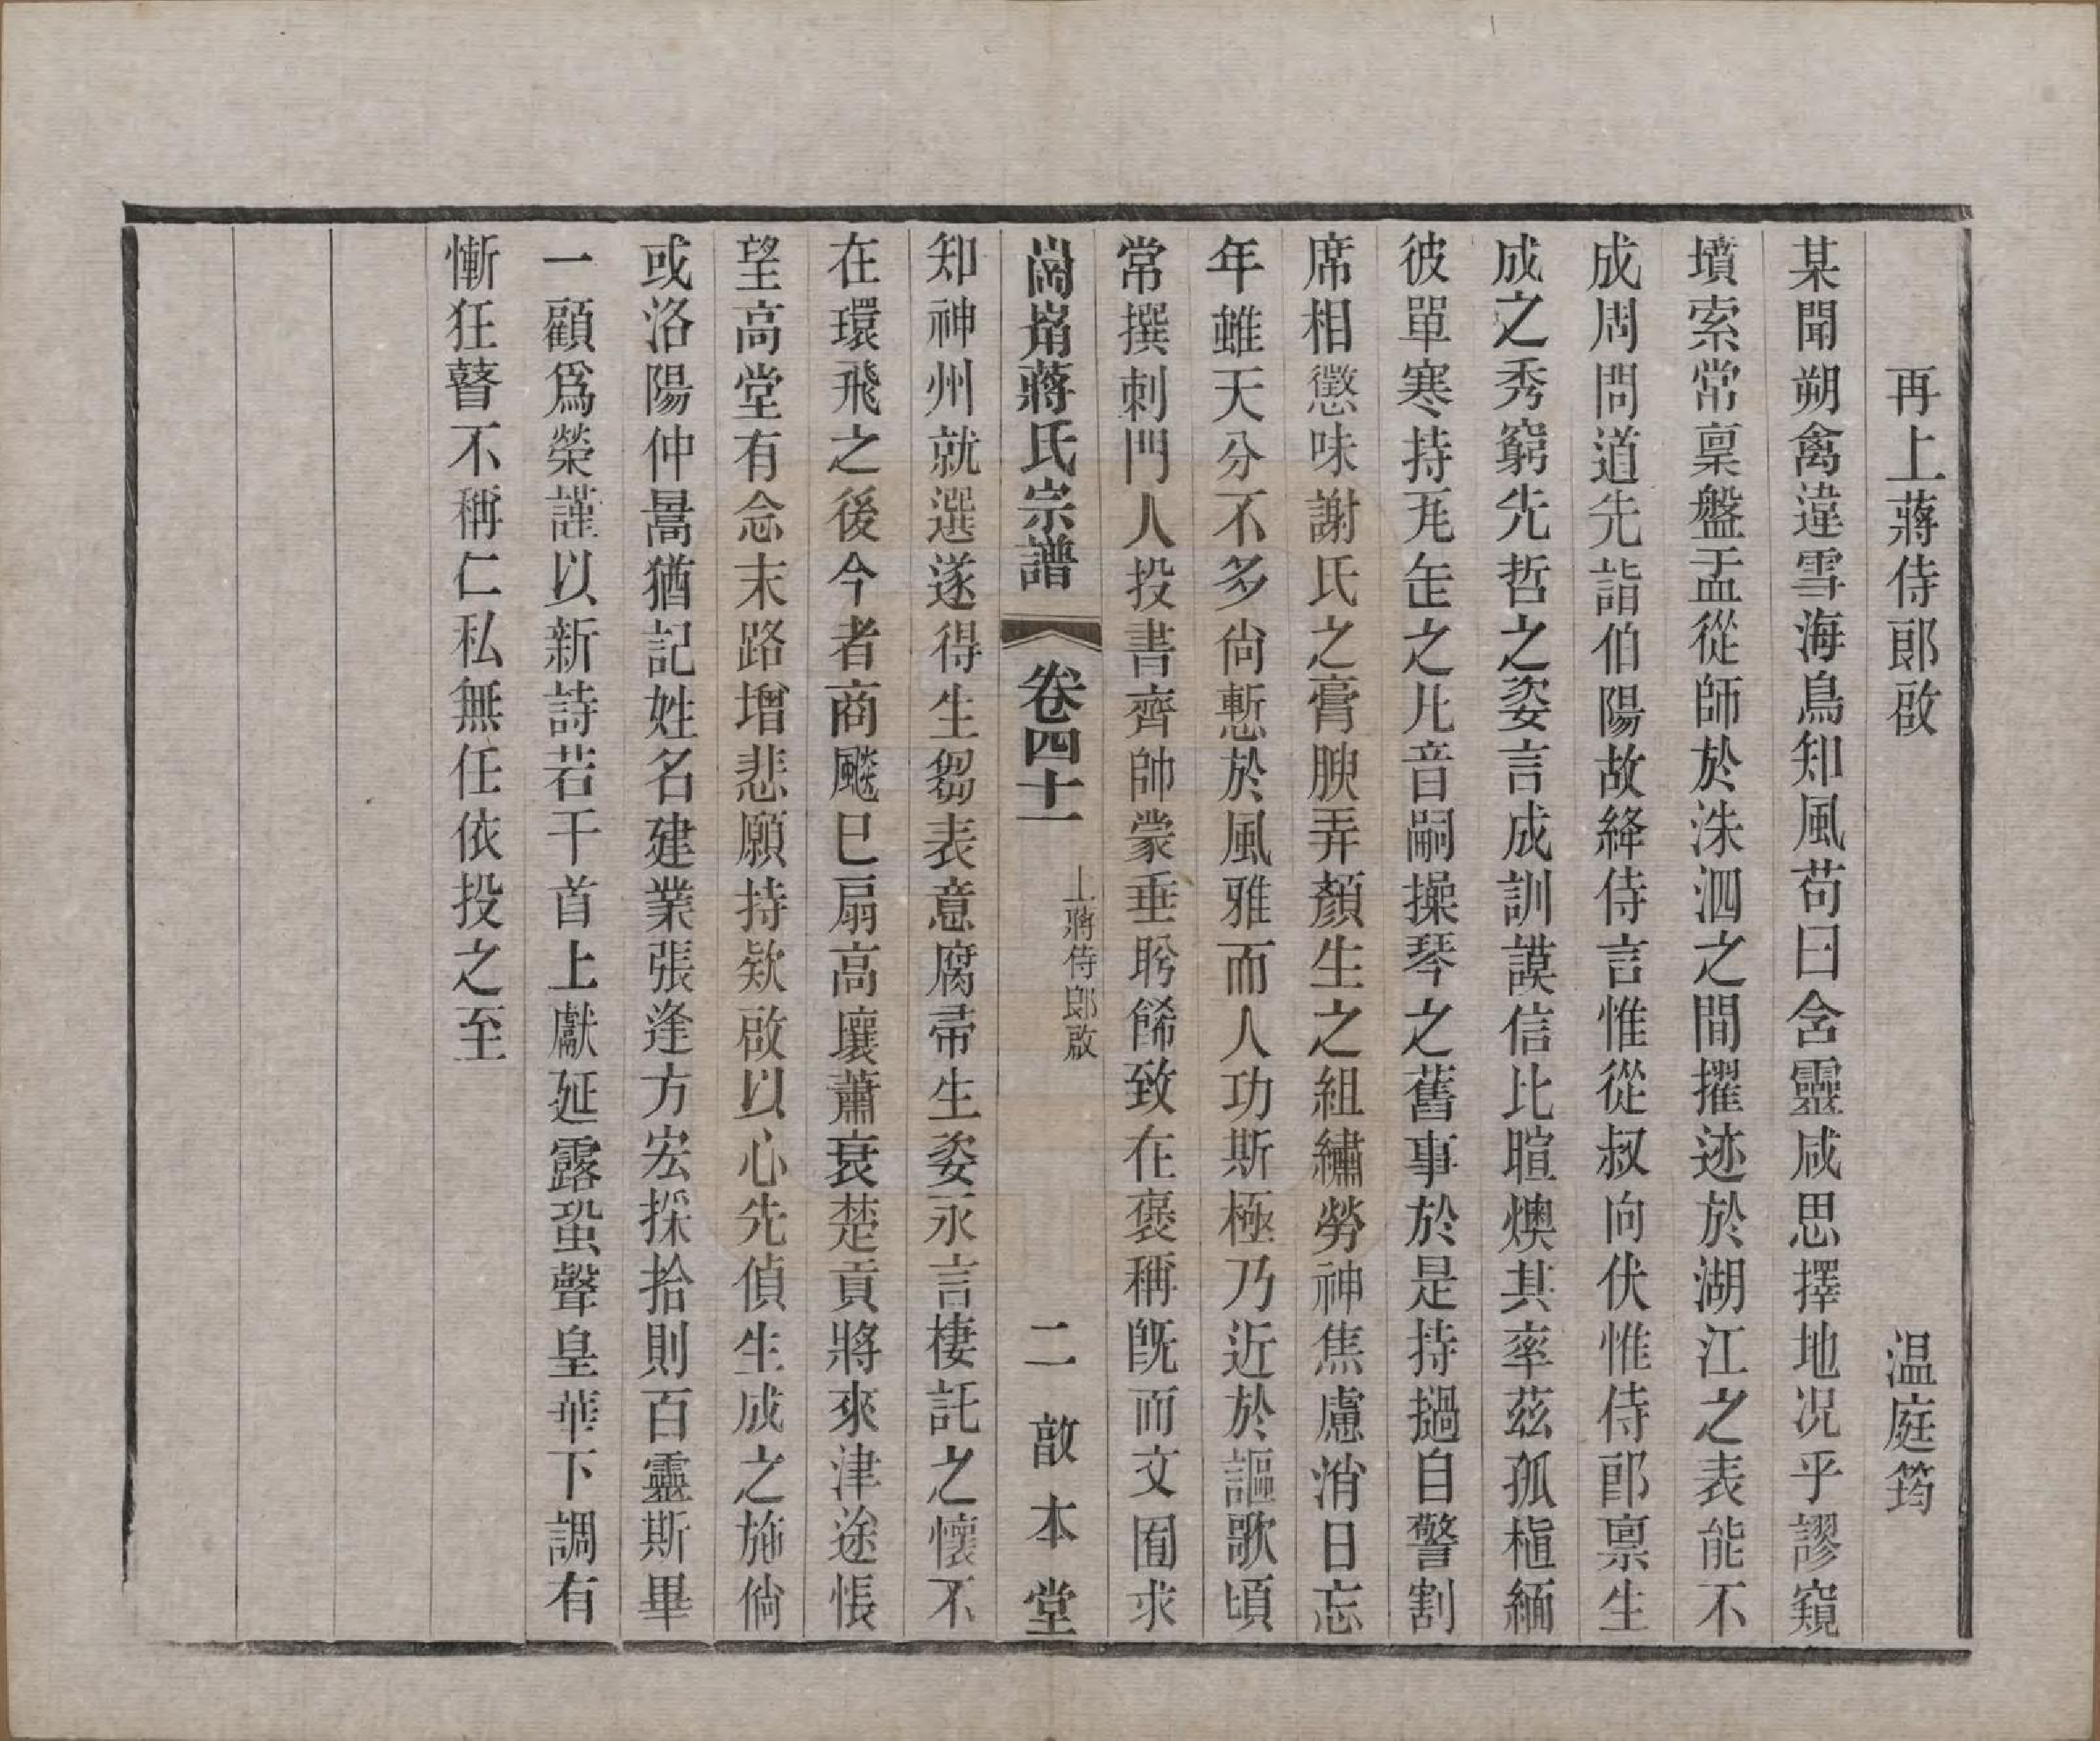 再上蔣侍郎啟　溫庭筠
某聞朔禽違雪海鳥知風苟曰含靈咸思擇地况乎謬窺
墳索常稟盤盂從師於洙泗之間擢迹於湖江之表能不
成周問道先詣伯陽故絳侍言惟從叔向伏惟侍郎禀生
成之秀窮先哲之姿言成訓謨信比暄燠其率茲孤植緬
彼單寒持瓦缶之凡音嗣操琴之舊事於是持撾自警割
席相懲味謝氏之膏腴弄顏生之組繡勞神焦慮消日忘
年雖天分不多尙慙於風雅而人功斯極乃近於謳歌頃
常撰刺門人投書齊帥蒙垂盻餙致在褒稱旣而文囿求
崗崀蔣氏宗譜　卷四十一　上蔣侍郎啟　二　敨本堂
知神州就選遂得生芻表意腐帚生姿永言棲託之懷不
在環飛之後今者商飈已扇高壤蕭衰楚貢將來津途悵
望高堂有念末路增悲願持欵啟以心先偵生成之施倘
或洛陽仲暠猶記姓名建業張逢方宏採拾則百靈斯畢
一顧爲榮謹以新詩若干首上獻延露蛩聲皇華下調有
慚狂瞽不稱仁私無任依投之至